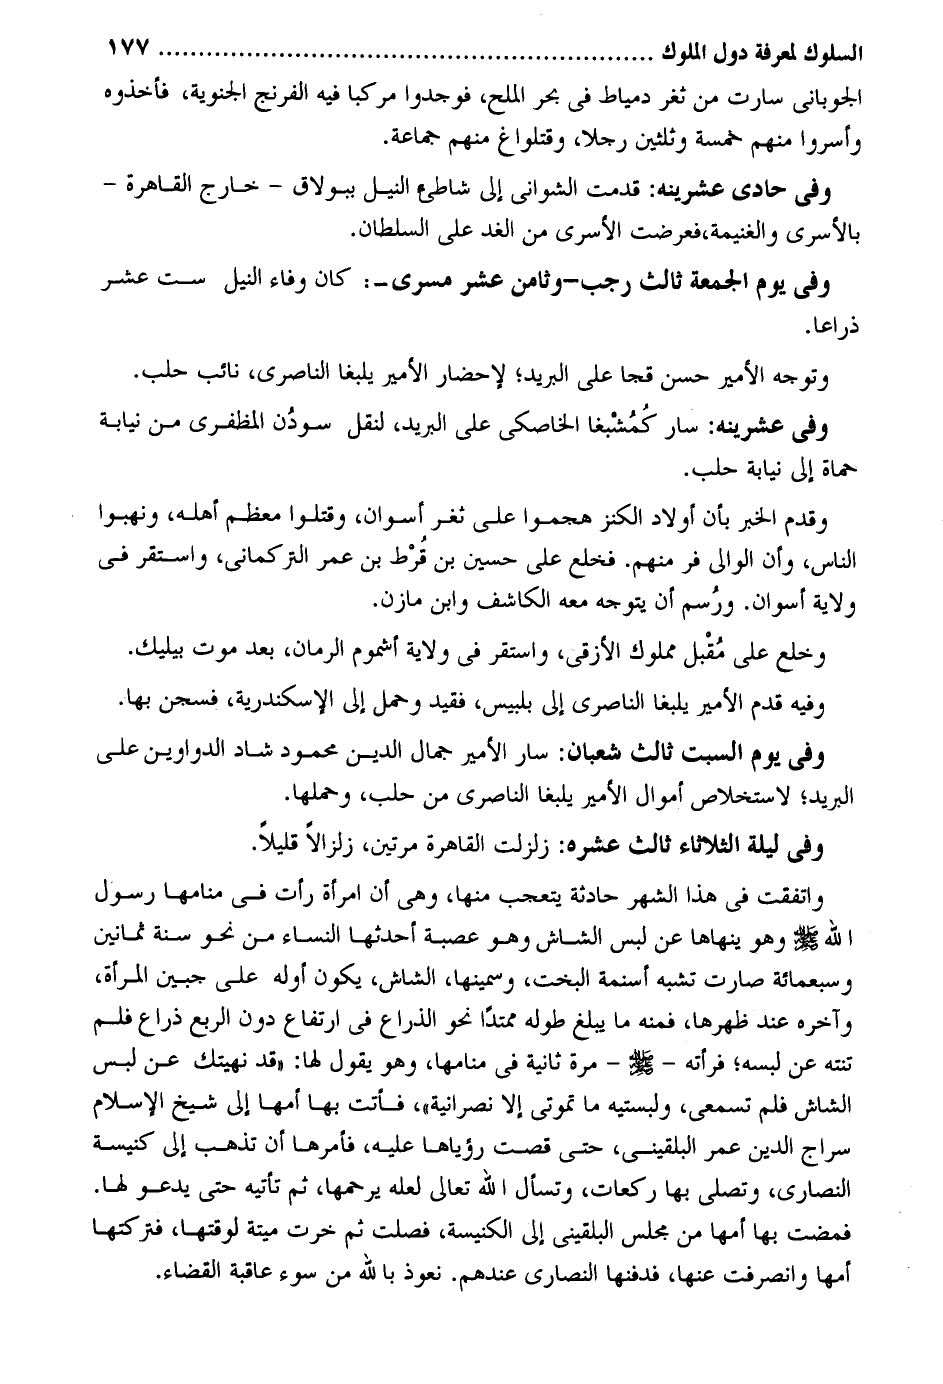 السلوك لمعرفة دول الملوك ............................................................... ١٧٧
الجوبانى سارت من ثغر دمياط فى بحر الملح، فوجدوا مركبا فيه الفرنج الجنوية، فأخذوه
وأسروا منهم خمسة وثلثين رجلا، وقتلواغ منهم جماعة.
وفى حادى عشرينه: قدمت الشوانى إلى شاطئ النيل ببولاق - خارج القاهرة -
بالأسرى والغنيمة،فعرضت الأسرى من الغد على السلطان.
وفى يوم الجمعة ثالث رجب-وثامن عشر مسرى-: كان وفاء النيل ست عشر
ذراعا.
وتوجه الأمير حسن قجا على البريد؛ لإحضار الأمير يلبغا الناصرى، نائب حلب.
وفى عشرينه: سار كُمُشْبغا الخاصكى على البريد، لنقل سودُن المظفرى من نيابة
حماة إلى نيابة حلب.
وقدم الخبر بأن أولاد الكنز هجموا على ثغر أسوان، وقتلوا معظم أهله، ونهبوا
الناس، وأن الوالى فر منهم. فخلع على حسين بن قُرْط بن عمر التركمانى، واستقر فى
ولاية أسوان. ورُسم أن يتوجه معه الكاشف وابن مازن.
وخلع على مُقْبل مملوك الأزقى، واستقر فى ولاية أشموم الرمان، بعد موت بيليك.
وفيه قدم الأمير يلبغا الناصرى إلى بلبيس، فقيد وحمل إلى الإسكندرية، فسجن بها.
وفى يوم السبت ثالث شعبان: سار الأمير جمال الدين محمود شاد الدواوين على
البريد؛ لاستخلاص أموال الأمير يلبغا الناصرى من حلب، وحملها.
وفى ليلة الثلاثاء ثالث عشره: زلزلت القاهرة مرتين، زلزالاً قليلاً.
واتفقت فى هذا الشهر حادثة يتعجب منها، وهى أن امرأة رأت فى منامها رسول
الله ﷺ وهو ينهاها عن لبس الشاش وهو عصبة أحدثها النساء من نحو سنة ثمانين
وسبعمائة صارت تشبه أسنمة البخت، وسمينها، الشاش، يكون أوله على جبين المرأة،
وآخره عند ظهرها، فمنه ما يبلغ طوله ممتدًا نحو الذراع فى ارتفاع دون الربع ذراع فلم
تنته عن لبسه؛ فرأته - ﷺ - مرة ثانية فى منامها، وهو يقول لها: «قد نهيتك عن لبس
الشاش فلم تسمعى، ولبستيه ما تموتى إلا نصرانية»، فأتت بها أمها إلى شيخ الإسلام
سراج الدين عمر البلقينى، حتى قصت رؤياها عليه، فأمرها أن تذهب إلى كنيسة
النصارى، وتصلى بها ركعات، وتسأل الله تعالى لعله يرحمها، ثم تأتيه حتى يدعو لها.
فمضت بها أمها من مجلس البلقينى إلى الكنيسة، فصلت ثم خرت ميتة لوقتها، فتركتها
أمها وانصرفت عنها، فدفنها النصارى عندهم. نعوذ بالله من سوء عاقبة القضاء.